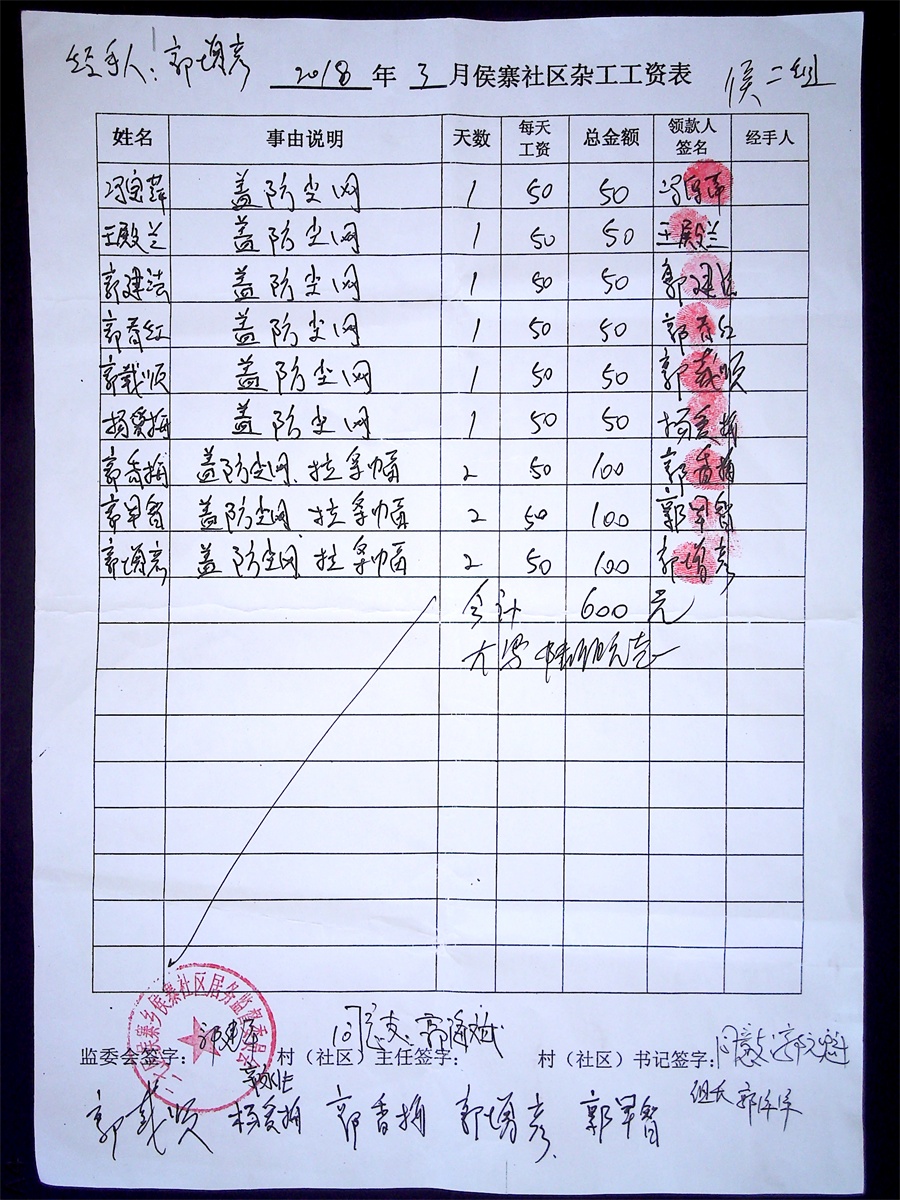 经手人：郭增彦
2018年3月侯寨社区杂工工资表 侯二组
姓名 事由说明 天数 每天工资 总金额 领款人签名 经手人
冯宝萍 盖防尘网 1 50 50 冯宝萍
王殿兰 盖防尘网 1 50 50 王殿兰
郭建法 盖防尘网 1 50 50 郭建法
郭春红 盖防尘网 1 50 50 郭春红
郭载顺 盖防尘网 1 50 50 郭载顺
杨爱梅 盖防尘网 1 50 50 杨爱梅
郭香梅 盖防尘网、拉条幅 2 50 100 郭香梅
郭早智 盖防尘网 拉条幅 2 50 100 郭早智
郭增彦 盖防尘网 拉条幅 2 50 100 郭增彦
合计 600元
大写 陆佰元整
侯寨乡侯寨社区居务监督委员会
监委会签字： 村（社区）主任签字： 同意 村（社区）书记签字： 同意
郭载顺 杨爱梅 郭香梅 郭增彦 郭早智 组长